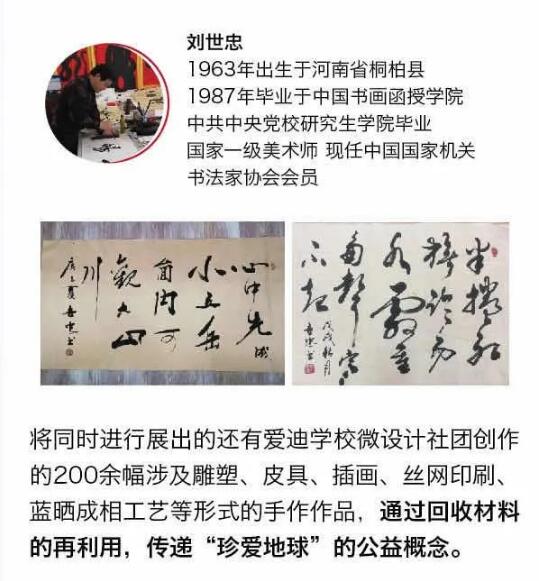 刘世忠
1963年出生于河南省桐柏县
1987年毕业于中国书画函授学院
中共中央党校研究生学院毕业
国家一级美术师 现任中国国家机关
书法家协会会员
心中先
小五岳
内可
观大山
川
世忠书
半捲红
旗临易
水霜重
鼓声寒
不起
戊戌秋月
世忠书
将同时进行展出的还有爱迪学校微设计社团创作
的200余幅涉及雕塑、皮具、插画、丝网印刷、
蓝晒成相工艺等形式的手作作品，通过回收材料
的再利用，传递“珍爱地球”的公益概念。